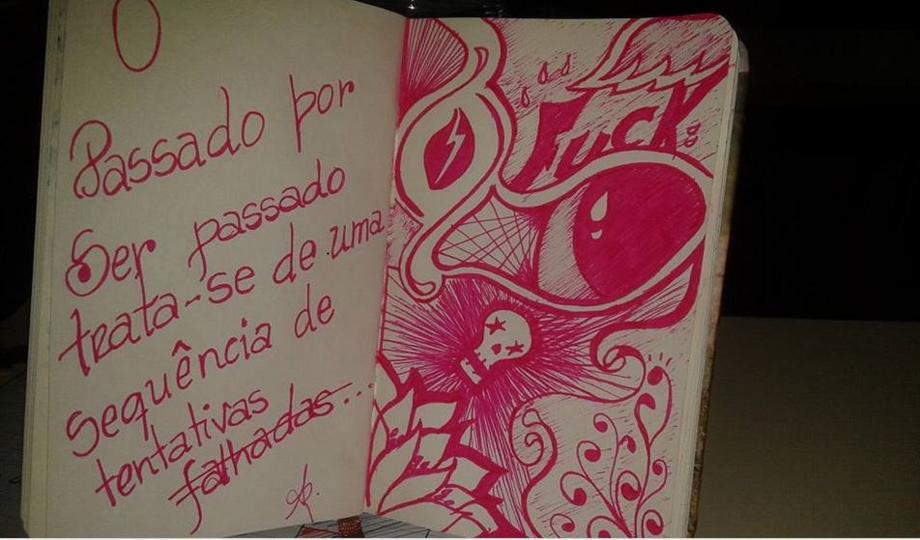 O
Passado por
Ser passado
trata-se de uma
Sequência de
tentativas
falhadas...
Fuck